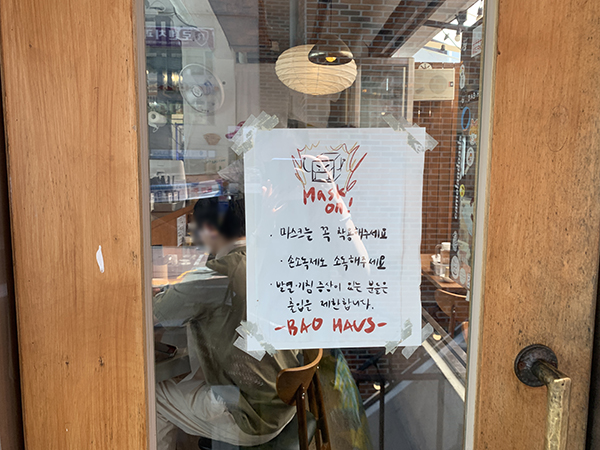 Mask
on!
· 마스크는 꼭 착용해주세요
· 손소독제도 소독해주세요
· 발열·기침 증상이 있는 분들은
출입을 제한합니다.
-BAO HAUS-